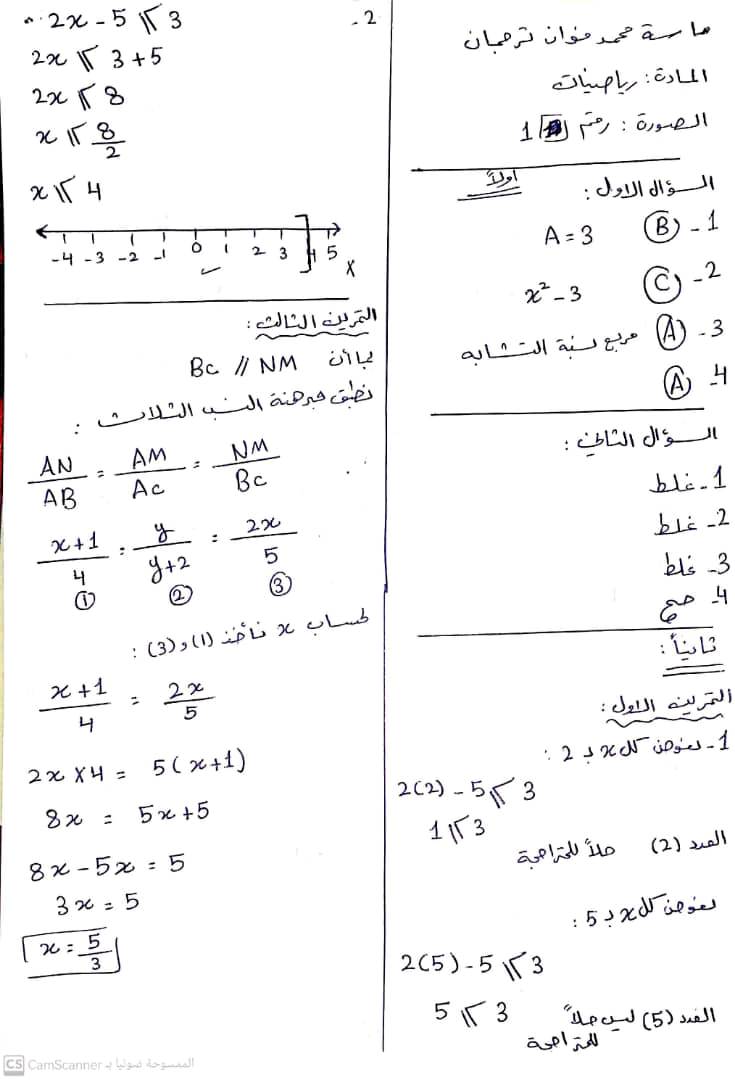 مدرسة محمد مروان ترجمان
المادة: رياضيات
الصورة: رقم 1
السؤال الاول: أولاً
1- (B) A = 3
2- (C) x² - 3
3- (A) مربع نسبة التشابه
4- (A)
السؤال الثاني:
1- غلط
2- غلط
3- غلط
4- صح
ثانياً:
التمرين الاول:
1- نعوض كل x بـ 2 :
2(2) - 5 ⩾ 3
1 ⩾ 3
العدد (2) حلاً للمتراجحة
نعوض كل x بـ 5 :
2(5) - 5 ⩾ 3
5 ⩾ 3
العدد (5) ليس حلاً
للمتراجحة
2-
2x - 5 ⩾ 3
2x ⩾ 3 + 5
2x ⩾ 8
x ⩾ 8/2
x ⩾ 4
-4 -3 -2 -1 0 1 2 3 4 5
x
التمرين الثالث:
بما أن BC // NM
نطبق مبرهنة النسب الثلاث :
AN/AB = AM/AC = NM/BC
x+1/4 = y/y+2 = 2x/5
① ② ③
لحساب x نأخذ (1) و (3) :
x+1/4 = 2x/5
2x × 4 = 5(x+1)
8x = 5x + 5
8x - 5x = 5
3x = 5
x = 5/3
CS CamScanner الممسوحة ضوئيا بـ